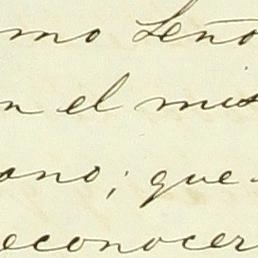 mo Seño
n el mis
ano; que
econocer